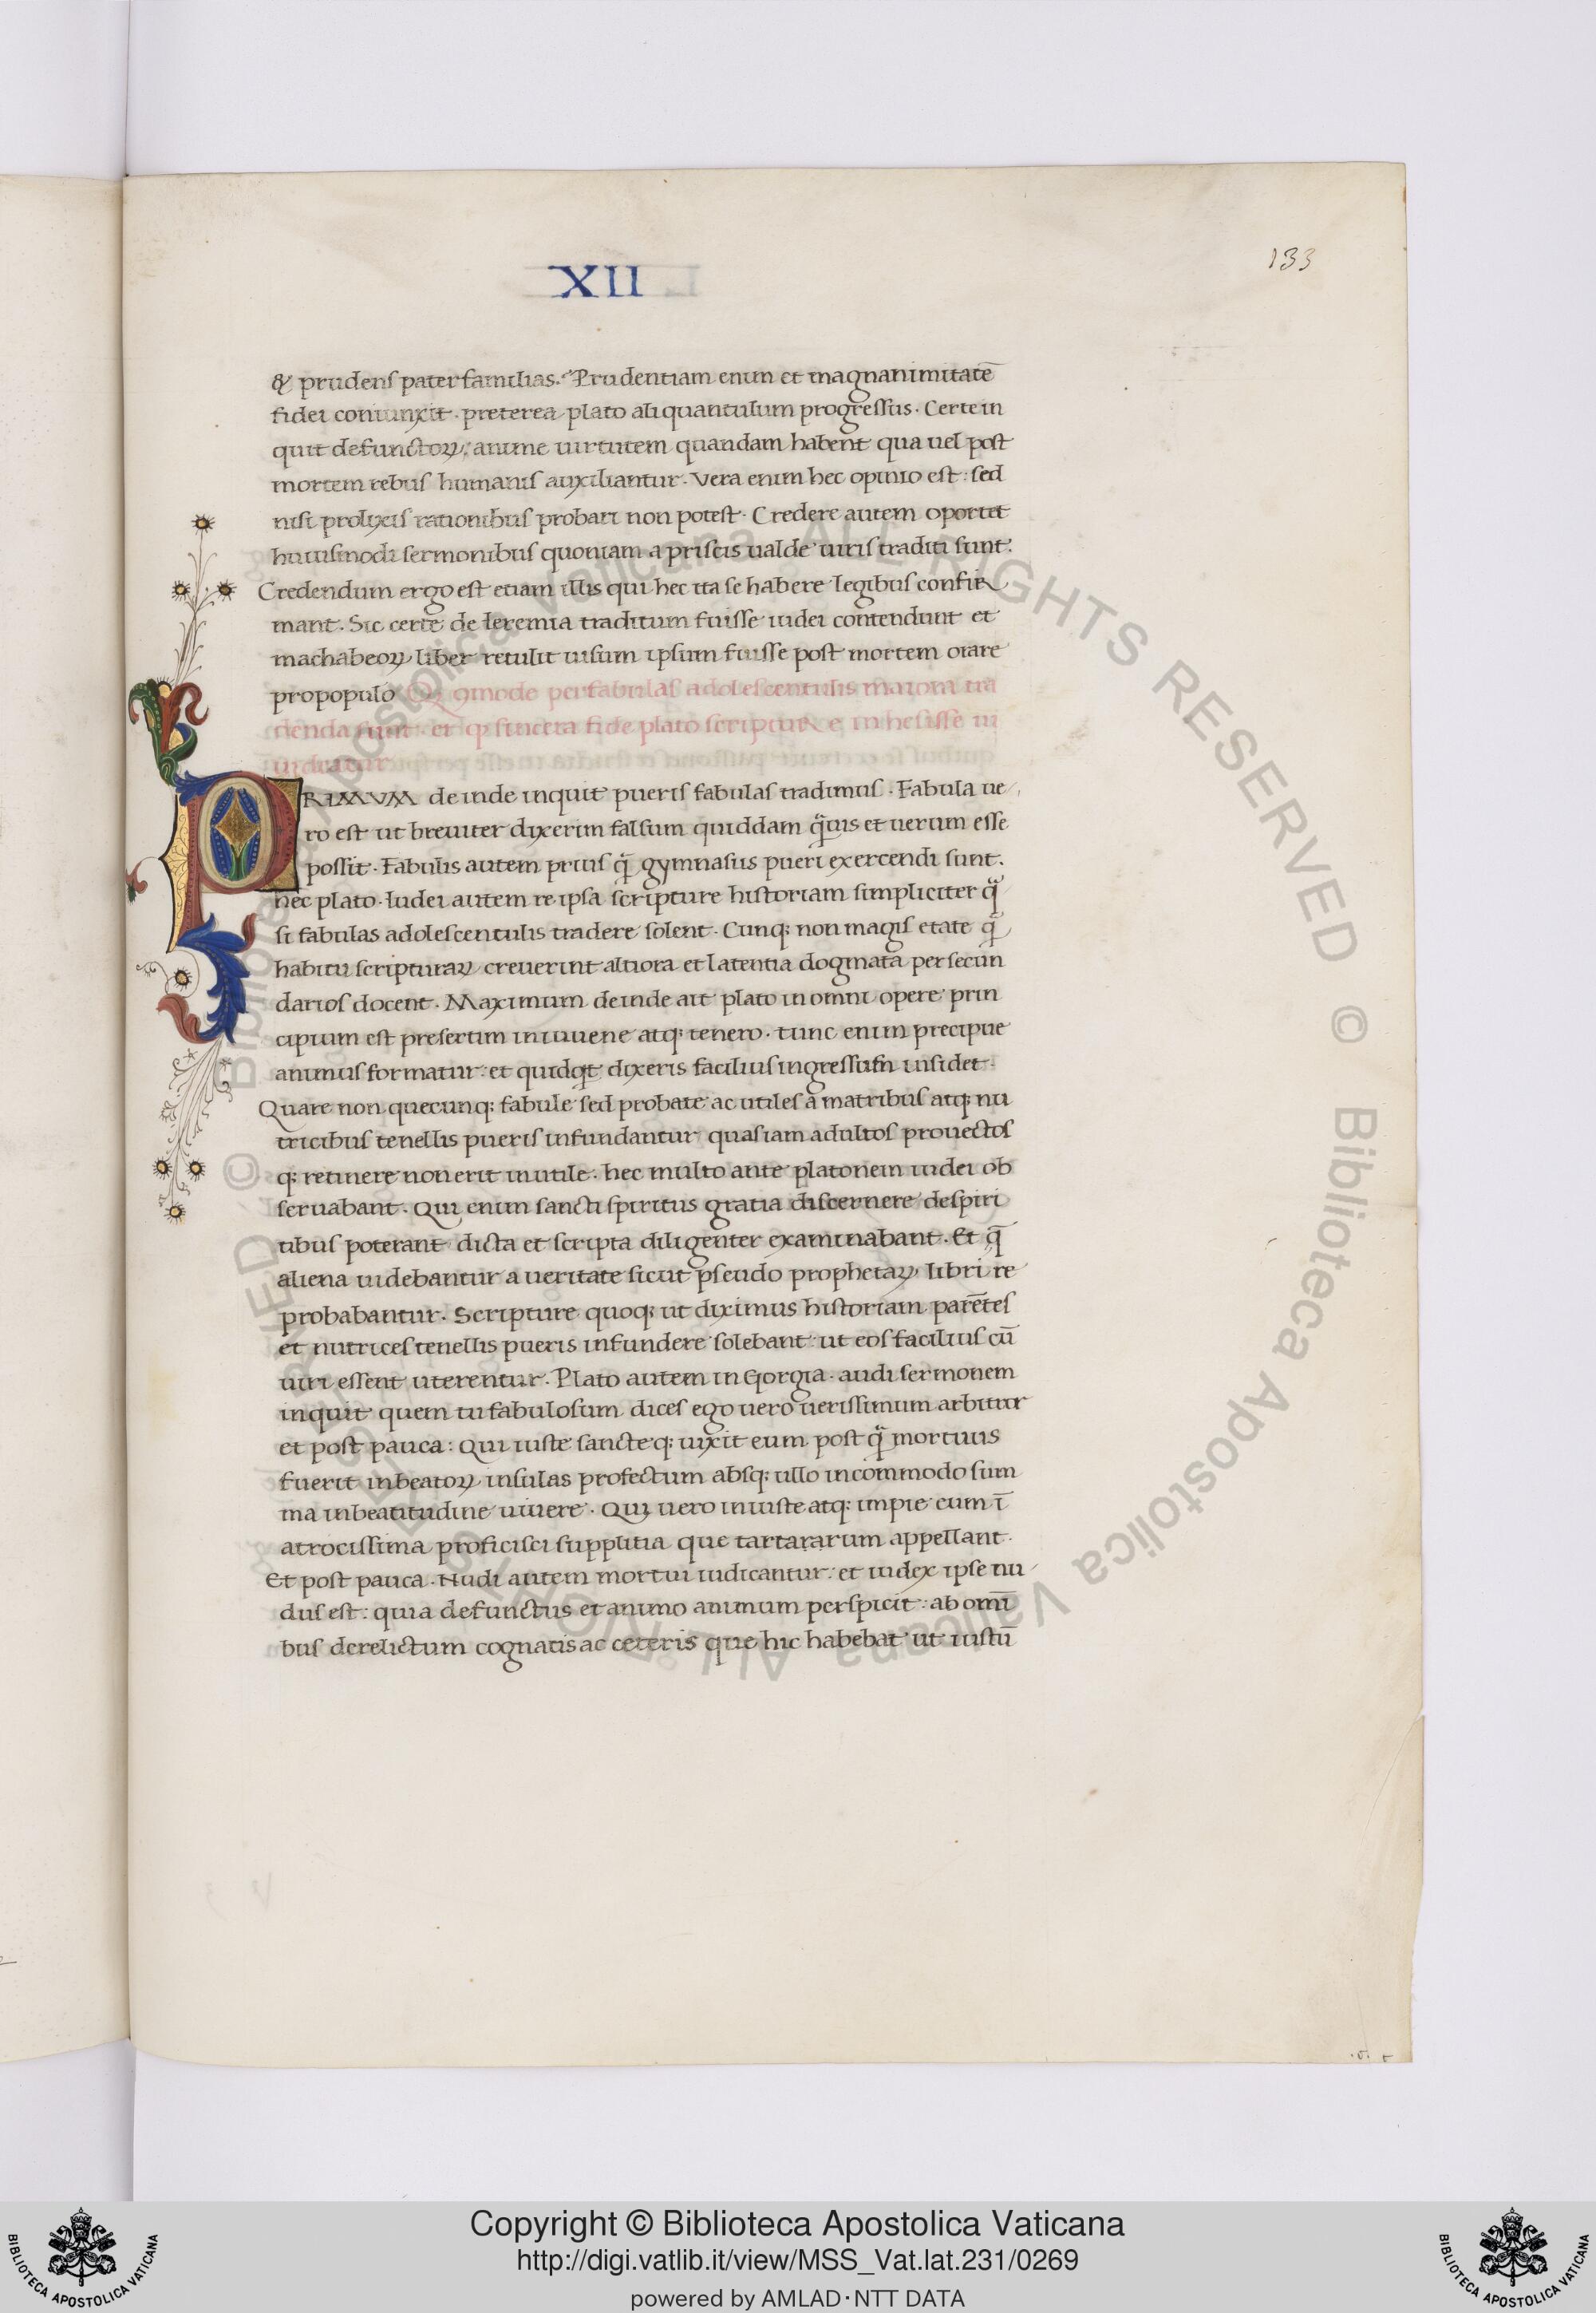 133
XII
& prudens paterfamilias. Prudentiam enim et magnanimitatē
fidei coniunxit. preterea plato aliquantulum progressus. Certe in
quit defunctoꝝ anime uirtutem quandam habent qua uel post
mortem rebus humanis auxiliantur. Vera enim hec opinio est: sed
nisi prolixis rationibus probari non potest. Credere autem oportet
huiusmodi sermonibus quoniam a priscis ualde uiris traditi sunt.
Credendum ergo est etiam illis qui hec ita se habere legibus confir
mant. Sic certe de Ieremia traditum fuisse iudei contendunt et
machabeoꝝ liber retulit uisum ipsum fuisse post mortem orare
pro populo Qͦmodo per fabulas adolescentulis maiora tra
denda sunt. et ꝙ sincera fide plato scripture inhesisse ui
uidetur
PRIMVM deinde inquit pueris fabulas tradimus. Fabula ue
ro est ut breuiter dixerim falsum quiddam q̃uis et uerum esse
possit. Fabulis autem prius q̃ gymnasiis pueri exercendi sunt.
hec plato. Iudei autem re ipsa scripture historiam simpliciter q̃
si fabulas adolescentulis tradere solent. Cunq; non magis etate q̃
habitu scripturaꝝ creuerint altiora et latentia dogmata per secun
darios docent. Maximum deinde ait plato in omni opere prin
cipium est presertim in iuuene atq; tenero. tunc enim precipue
animus formatur: et quidq̇t dixeris facilius ingressum insidet.
Quare non quecunq; fabule sed probate ac utiles a matribus atq; nu
tricibus tenellis pueris infundantur quas iam adultos prouectos
q; retinere non erit inutile. hec multo ante platonem iudei ob
seruabant. Qui enim sancti spiritus gratia discernere de spiri
tibus poterant dicta et scripta diligenter examinabant. Et q̄
aliena uidebantur a ueritate sicut pseudo prophetaꝝ libri re
probabantur. Scripture quoq; ut diximus historiam parētes
et nutrices tenellis pueris infundere solebant: ut eos facilius cū
uiri essent uterentur. Plato autem in Gorgia. audi sermonem
inquit quem tu fabulosum dices ego uero uerissimum arbitror
et post pauca: Qui iuste sancteq; uixit eum post q̃ mortuus
fuerit in beatoꝝ insulas profectum absq; ullo incommodo sum
ma in beatitudine uiuere. Qui uero iniuste atq; impie eum ī
atrocissima proficisci supplitia que tartararum appellant.
Et post pauca. Nudi autem mortui iudicantur: et iudex ipse nu
dus est: quia defunctus et animo animum perspicit: ab omī
bus derelictum cognatis ac ceteris que hic habebat ut iustū
© Biblioteca Apostolica Vaticana ALL RIGHTS RESERVED © Biblioteca Apostolica Vaticana ALL RIGHTS RESERVED
Copyright © Biblioteca Apostolica Vaticana
http://digi.vatlib.it/view/MSS_Vat.lat.231/0269
powered by AMLAD·NTT DATA
BIBLIOTECA APOSTOLICA VATICANA
BIBLIOTECA APOSTOLICA VATICANA